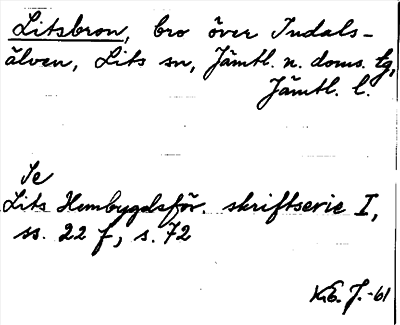 Litsbron, bro över Indals-
älven, Lits sn, Jämtl. n. doms. tg,
Jämtl. l.
Se
Lits Hembygdsför. skriftserie I,
ss. 22 f, s. 72
K.E. J.-61